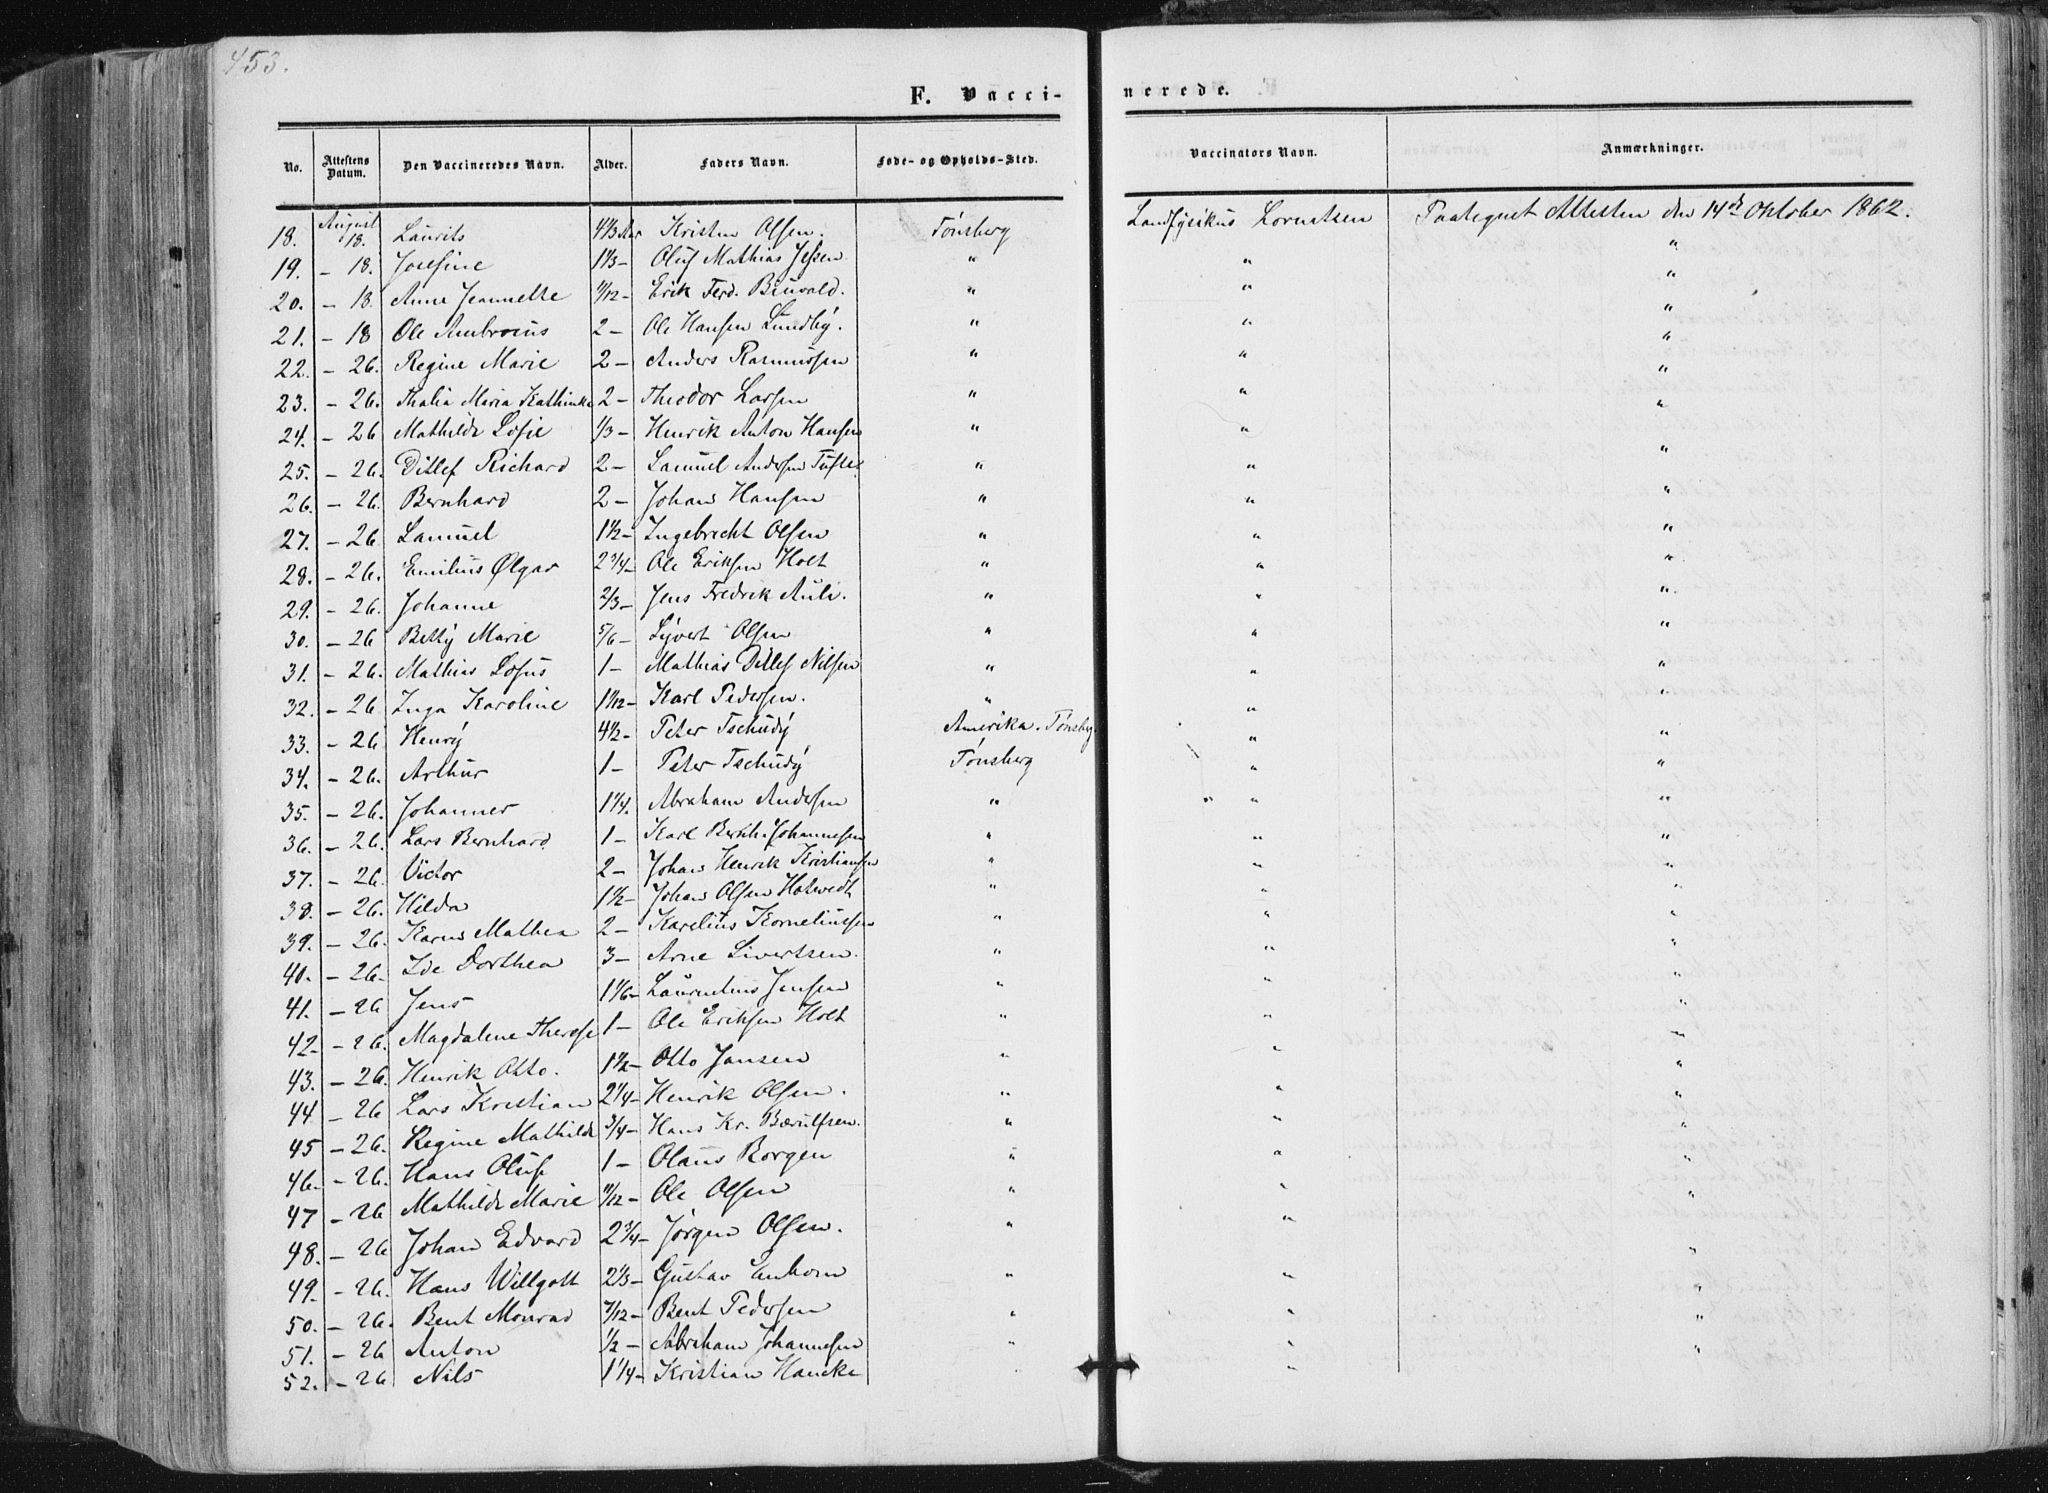 453.
F. Vaccinerede.
No. Attestens Datum. Den Vaccineredes Navn. Alder. Faders Navn. Føde- og Opholds-Sted. Vaccinators Navn. Anmærkninger.
18. August 18. Laurits 4 1/3 Aar Kristen Olsen. Tønsberg Landfysikus Paategnet Attesten den 14de Oktober 1862.
19. – 18. Josefine 1 1/3 – Oluf Mathias Jessen " " "
20. – 18. Anne Jeannette 11/12 – Erik Ferd. " " "
21. – 18 Ole Ambrosius 2 – Ole Hansen Lundby. " " "
22. – 26. Regine Marie 2 – Anders Rasmussen " " "
23. – 26. Thalia Maria Kathinka 2 – Theodor Larsen " " "
24. – 26 Mathilde Sofie 1/3 – Henrik Anton Hansen " " "
25. – 26. Ditlef Richard 2 – Samuel Andersen Tuftes " " "
26. – 26. Bernhard 2 – Johan Hansen " " "
27. – 26 Samuel 1 1/2 – Ingebrecht Olsen " " "
28. – 26. Emilius Ølgar 2 3/4 – Ole Eriksen Holt " " "
29. – 26. Johanne 2/3 – Jens Fredrik Auli. " " "
30. – 26 Betty Marie 5/6 – Syvert Olsen " " "
31. – 26. Mathias Sofus 1 – Mathias Ditlef Nilsen " " "
32. – 26 Inga Karoline 1 1/12 – Karl Pedersen. " " "
33. – 26 Henry 4 1/2 – Peter Tschudy Amerika. Tønsbg. " "
34. – 26. Arthur 1 – Peter Tschudy Tønsberg " "
35. – 26. Johannes 1 1/4. Abraham Andersen " " " "
36. – 26. Lars Bernhard 1 – Karl Bernh. Johannesen " " "
37. – 26. Victor 2 – Johan Henrik Kristiansen " " "
38. – 26. Hilda 1 1/2 – Johan Olsen " " "
39. – 26. Karen Mathea 2 – Karelius Korneliussen " " "
40. – 26. Ide Dorthea 3 – Arne Sivertsen. " " "
41. – 26 Jens 1 1/6 – Laurentius Jensen " " "
42 – 26. Magdalene Therese 1 – Ole Eriksen Holt " " "
43. – 26. Henrik Otto. 1 1/2 – Otto Jansen " " "
44 – 26 Lars Kristian 2 1/4 – Henrik Olsen. " " "
45 – 26. Regine Mathilde 3/4 – Hans Kr. " " "
46. – 26. Hans Oluf 1 – Olaus Borgen " " "
47 – 26 Mathilde Marie 11/12 – Ole Olsen " " "
48. – 26 Johan Edvard 2 3/4 – Jørgen Olsen. " " "
49. – 26. Hans Willgott 2 1/3 – Gustav Enhorn " " "
50. – 26. Bent Monrad 7/12 – Bent Pedersen " " "
51. – 26 Anton 1/2 – Abraham Johannesen " " "
52. – 26 Nils 1 1/4 – Kristian Hancke " "